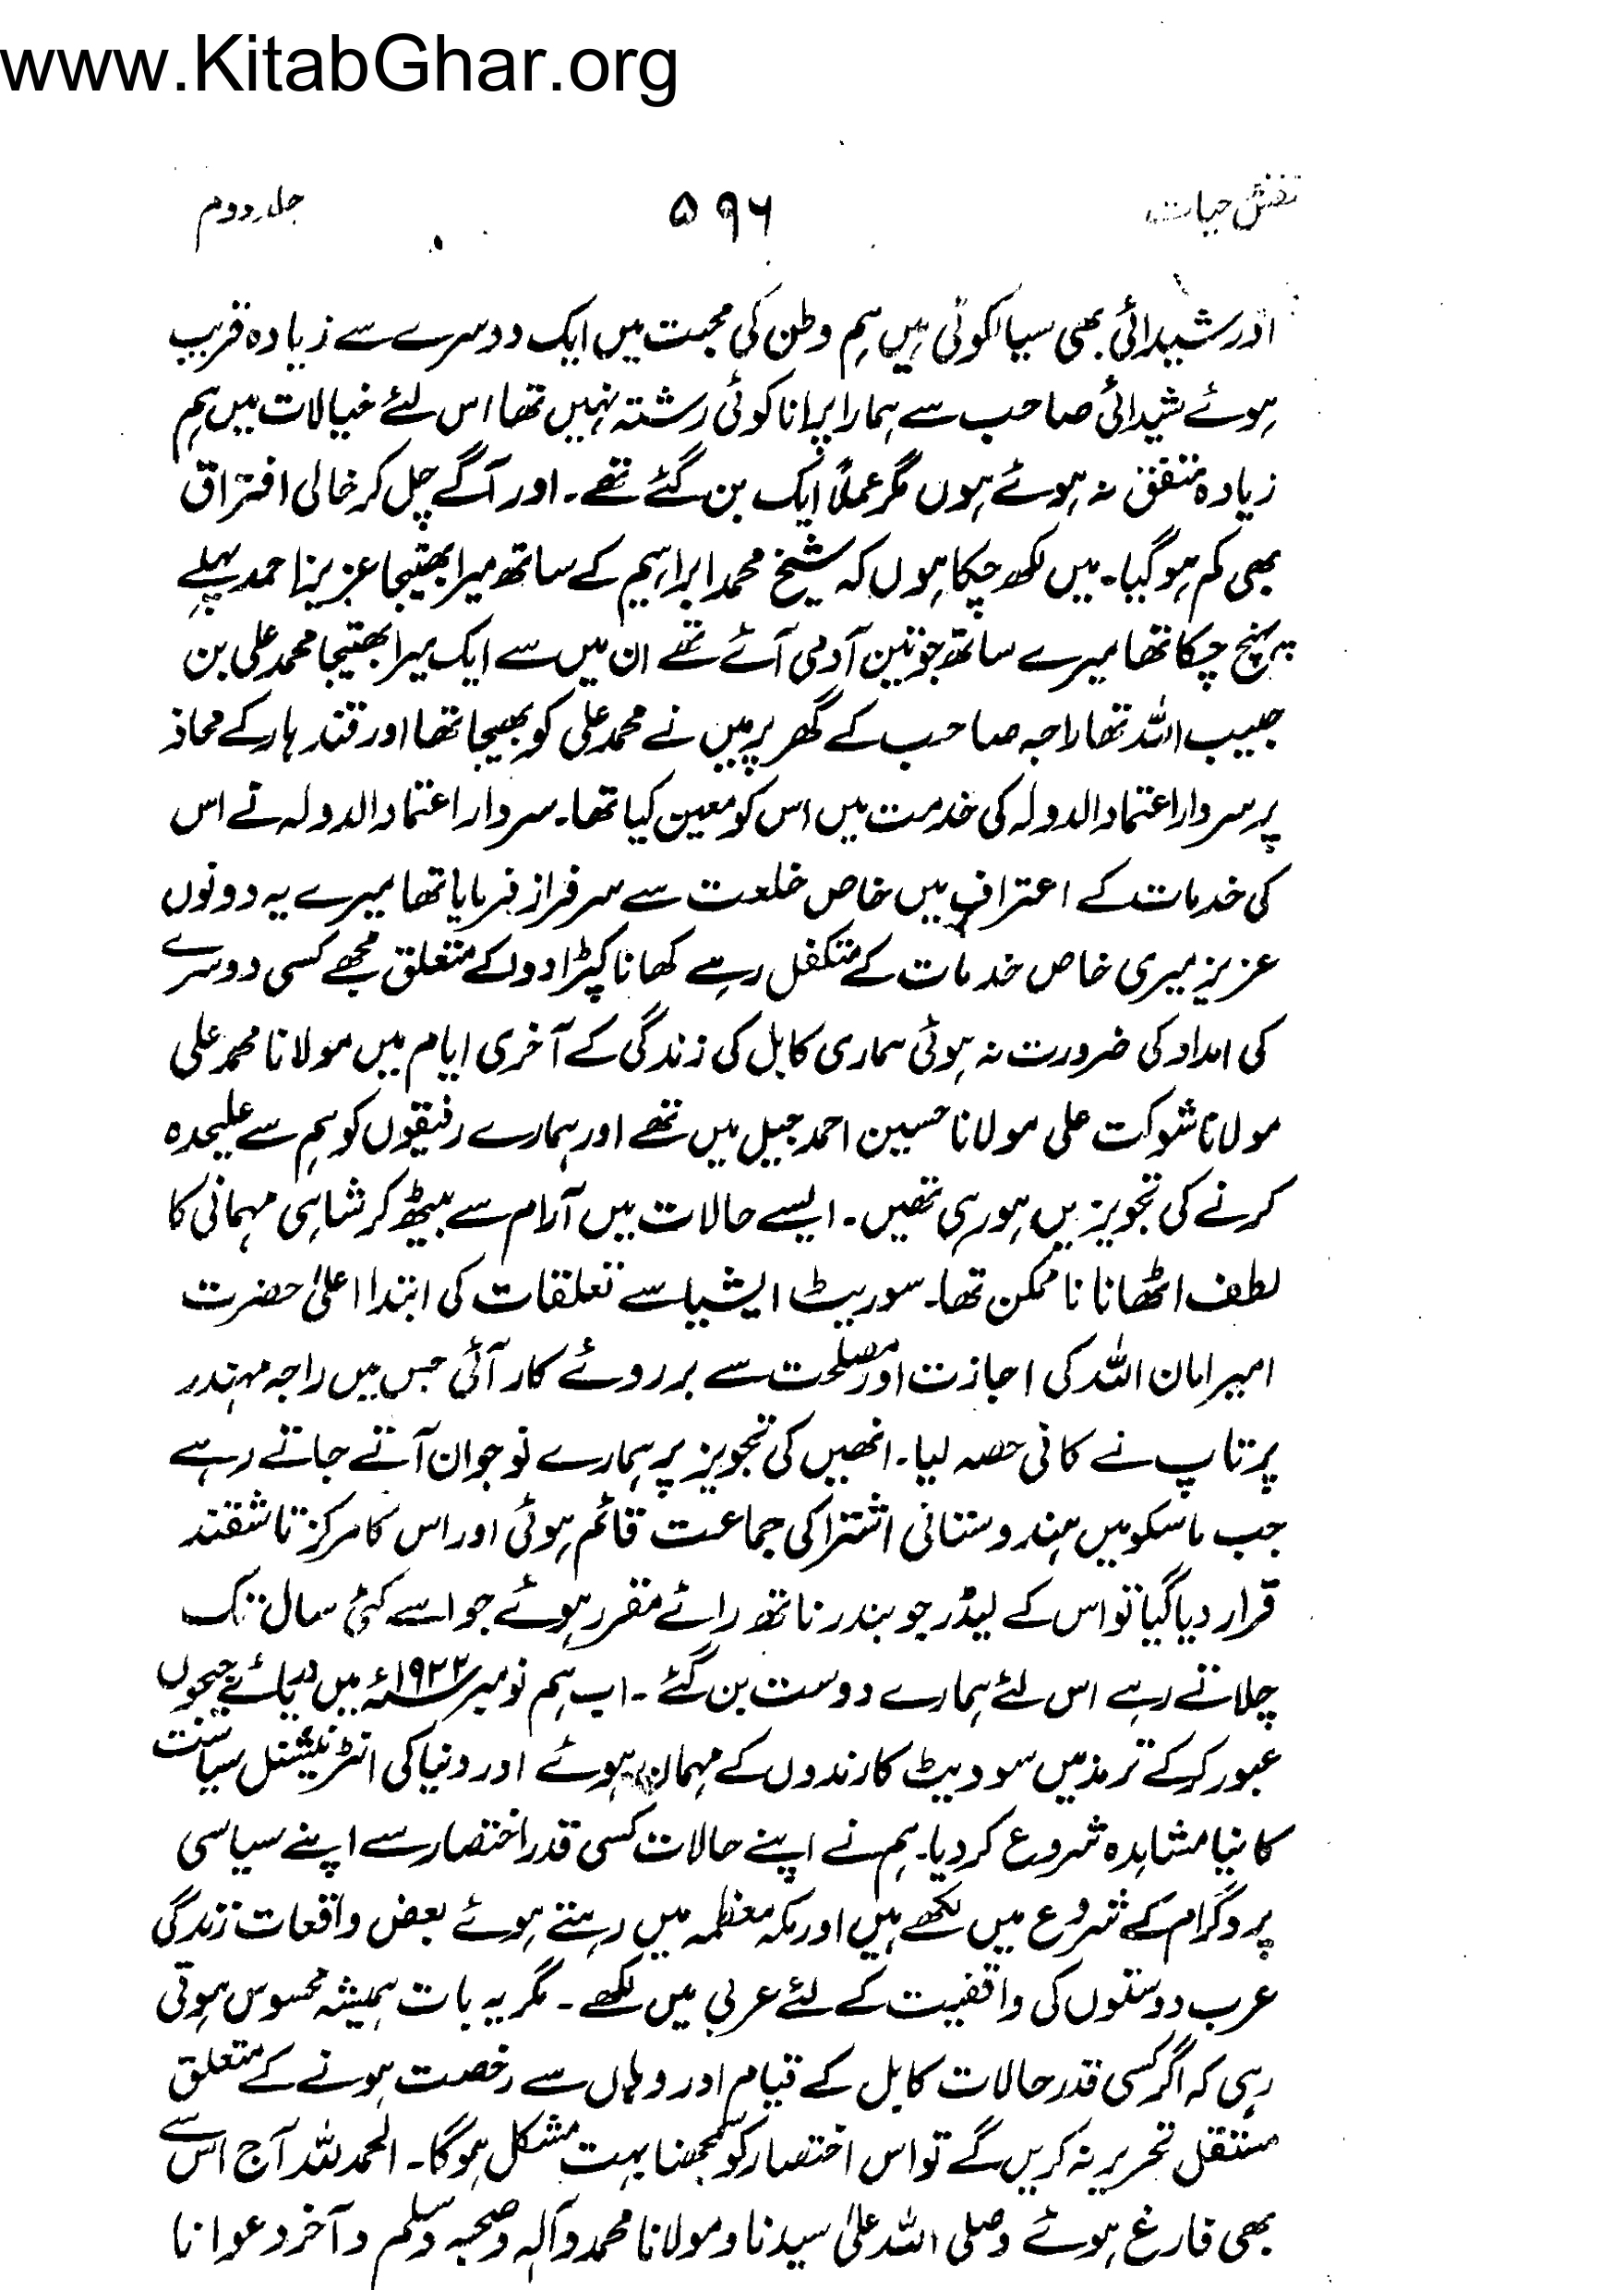 www.KitabGhar.org
نقش حیات ۵۹۶ جلد دوم
اور شیدائی بھی سیالکوٹی ہیں ہم وطن کی محبت میں ایک دوسرے سے زیادہ قریب
ہوئے شیدائی صاحب سے ہمارا پرانا کوئی رشتہ نہیں تھا اس لئے خیالات میں ہم
زیادہ متفق نہ ہوئے ہوں مگر عملاً ایک بن گئے تھے۔ اور آگے چل کر خالی افتراق
بھی کم ہو گیا۔ میں لکھ چکا ہوں کہ شیخ محمد ابراہیم کے ساتھ میرا بھتیجا عزیز احمد پہلے
پہنچ چکا تھا میرے ساتھ جو تین آدمی آئے تھے ان میں سے ایک میرا بھتیجا محمد علی بن
حبیب اللہ تھا راجہ صاحب کے گھر پر میں نے محمد علی کو بھیجا تھا اور قندہار کے محاذ
پر سردار اعتماد الدولہ کی خدمت میں اس کو معین کیا تھا۔ سردار اعتماد الدولہ نے اس
کی خدمات کے اعتراف میں خاص خلعت سے سرفراز فرمایا تھا میرے یہ دونوں
عزیز میری خاص خدمات کے متکفل رہے کھانا کپڑا دوا کے متعلق مجھے کسی دوسرے
کی امداد کی ضرورت نہ ہوئی ہماری کابل کی زندگی کے آخری ایام میں مولانا محمد علی
مولانا شوکت علی مولانا حسین احمد جیل میں تھے اور ہمارے رفیقوں کو ہم سے علیحدہ
کرنے کی تجویزیں ہو رہی تھیں۔ ایسے حالات میں آرام سے بیٹھ کر شاہی مہمانی کا
لطف اٹھانا نا ممکن تھا۔ سوریٹ ایشیا سے تعلقات کی ابتدا اعلیٰ حضرت
امیر امان اللہ کی اجازت اور مصلحت سے بروئے کار آئی جس میں راجہ مہندر
پرتاپ نے کافی حصہ لیا۔ انھیں کی تجویز پر ہمارے نوجوان آتے جاتے رہے
جب ماسکو میں ہندوستانی اشتراکی جماعت قائم ہوئی اور اس کا مرکز تاشقند
قرار دیا گیا تو اس کے لیڈر جو بندر ناتھ رائے مقرر ہوئے جو اسے کئی سال تک
چلاتے رہے اس لئے ہمارے دوست بن گئے ۔ اب ہم نومبر ۱۹۲۲ء میں دریائے جیحوں
عبور کر کے ترمذ میں سودیٹ کارندوں کے مہمان ہوئے اور دنیا کی انٹرنیشنل سیاست
کا نیا مشاہدہ شروع کر دیا۔ ہم نے اپنے حالات کسی قدر اختصار سے اپنے سیاسی
پروگرام کے شروع میں لکھے ہیں اور مکہ معظمہ میں رہتے ہوئے بعض واقعات زندگی
عرب دوستوں کی واقفیت کے لئے عربی میں لکھے ۔ مگر یہ بات ہمیشہ محسوس ہوتی
رہی کہ اگر کسی قدر حالات کابل کے قیام اور وہاں سے رخصت ہونے کے متعلق
مستقل تحریر نہ کریں گے تو اس اختصار کو سمجھنا بہت مشکل ہو گا۔ الحمد للہ آج اس سے
بھی فارغ ہوئے وصلی اللہ علیٰ سیدنا و مولانا محمد وآلہ وصحبہ وسلم وآخر دعوانا